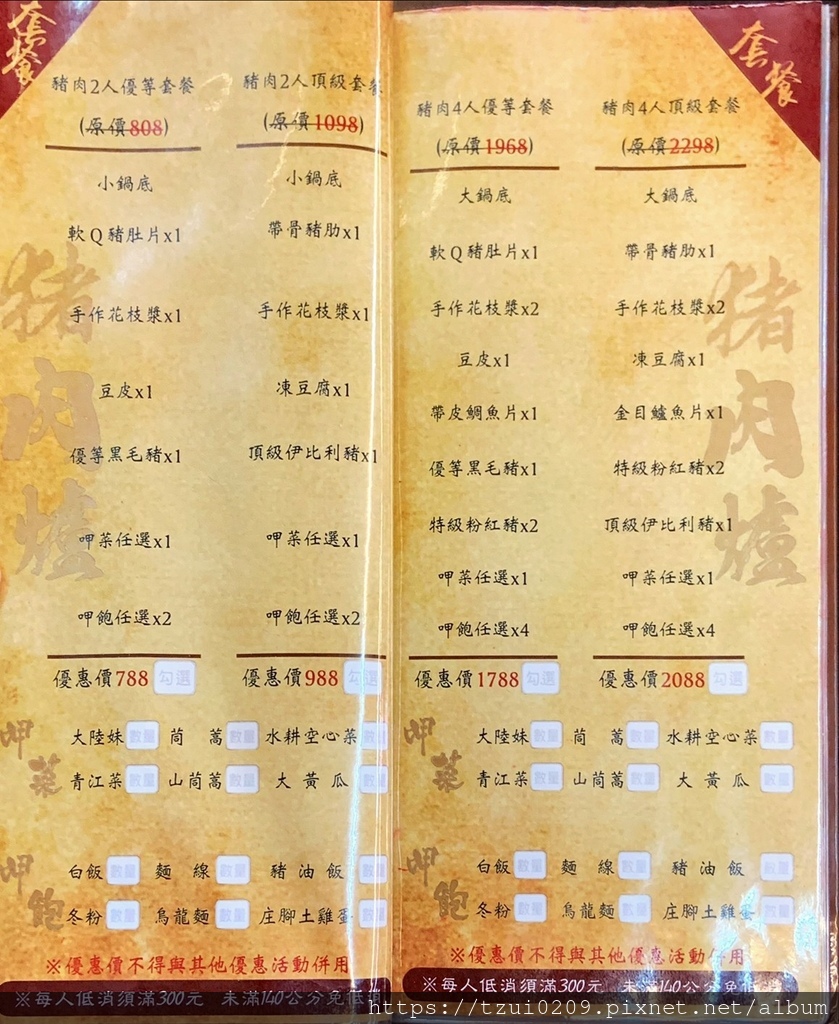 套餐
豬肉2人優等套餐
(原價808)
小鍋底
軟Q豬肚片x1
手作花枝漿x1
豆皮x1
優等黑毛豬x1
呷菜任選x1
呷飽任選x2
優惠價788 勾選
豬肉2人頂級套餐
(原價1098)
小鍋底
帶骨豬肋x1
手作花枝漿x1
凍豆腐x1
頂級伊比利豬x1
呷菜任選x1
呷飽任選x2
優惠價988 勾選
豬肉爐
呷菜
大陸妹 數量 茼蒿 數量 水耕空心菜 數量
青江菜 數量 山茼蒿 數量 大黃瓜 數量
呷飽
白飯 數量 麵線 數量 豬油飯 數量
冬粉 數量 烏龍麵 數量 庄腳土雞蛋 數量
※優惠價不得與其他優惠活動併用
※每人低消須滿300元 未滿140公分免低消
套餐
豬肉4人優等套餐
(原價1968)
大鍋底
軟Q豬肚片x1
手作花枝漿x2
豆皮x1
帶皮鯛魚片x1
優等黑毛豬x1
特級粉紅豬x2
呷菜任選x1
呷飽任選x4
優惠價1788 勾選
豬肉4人頂級套餐
(原價2298)
大鍋底
帶骨豬肋x1
手作花枝漿x2
凍豆腐x1
金目鱸魚片x1
特級粉紅豬x2
頂級伊比利豬x1
呷菜任選x1
呷飽任選x4
優惠價2088 勾選
豬肉爐
呷菜
大陸妹 數量 茼蒿 數量 水耕空心菜 數量
青江菜 數量 山茼蒿 數量 大黃瓜 數量
呷飽
白飯 數量 麵線 數量 豬油飯 數量
冬粉 數量 烏龍麵 數量 庄腳土雞蛋 數量
※優惠價不得與其他優惠活動併用
※每人低消須滿300元 未滿140公分免低消
https://tzui0209.pixnet.net/album